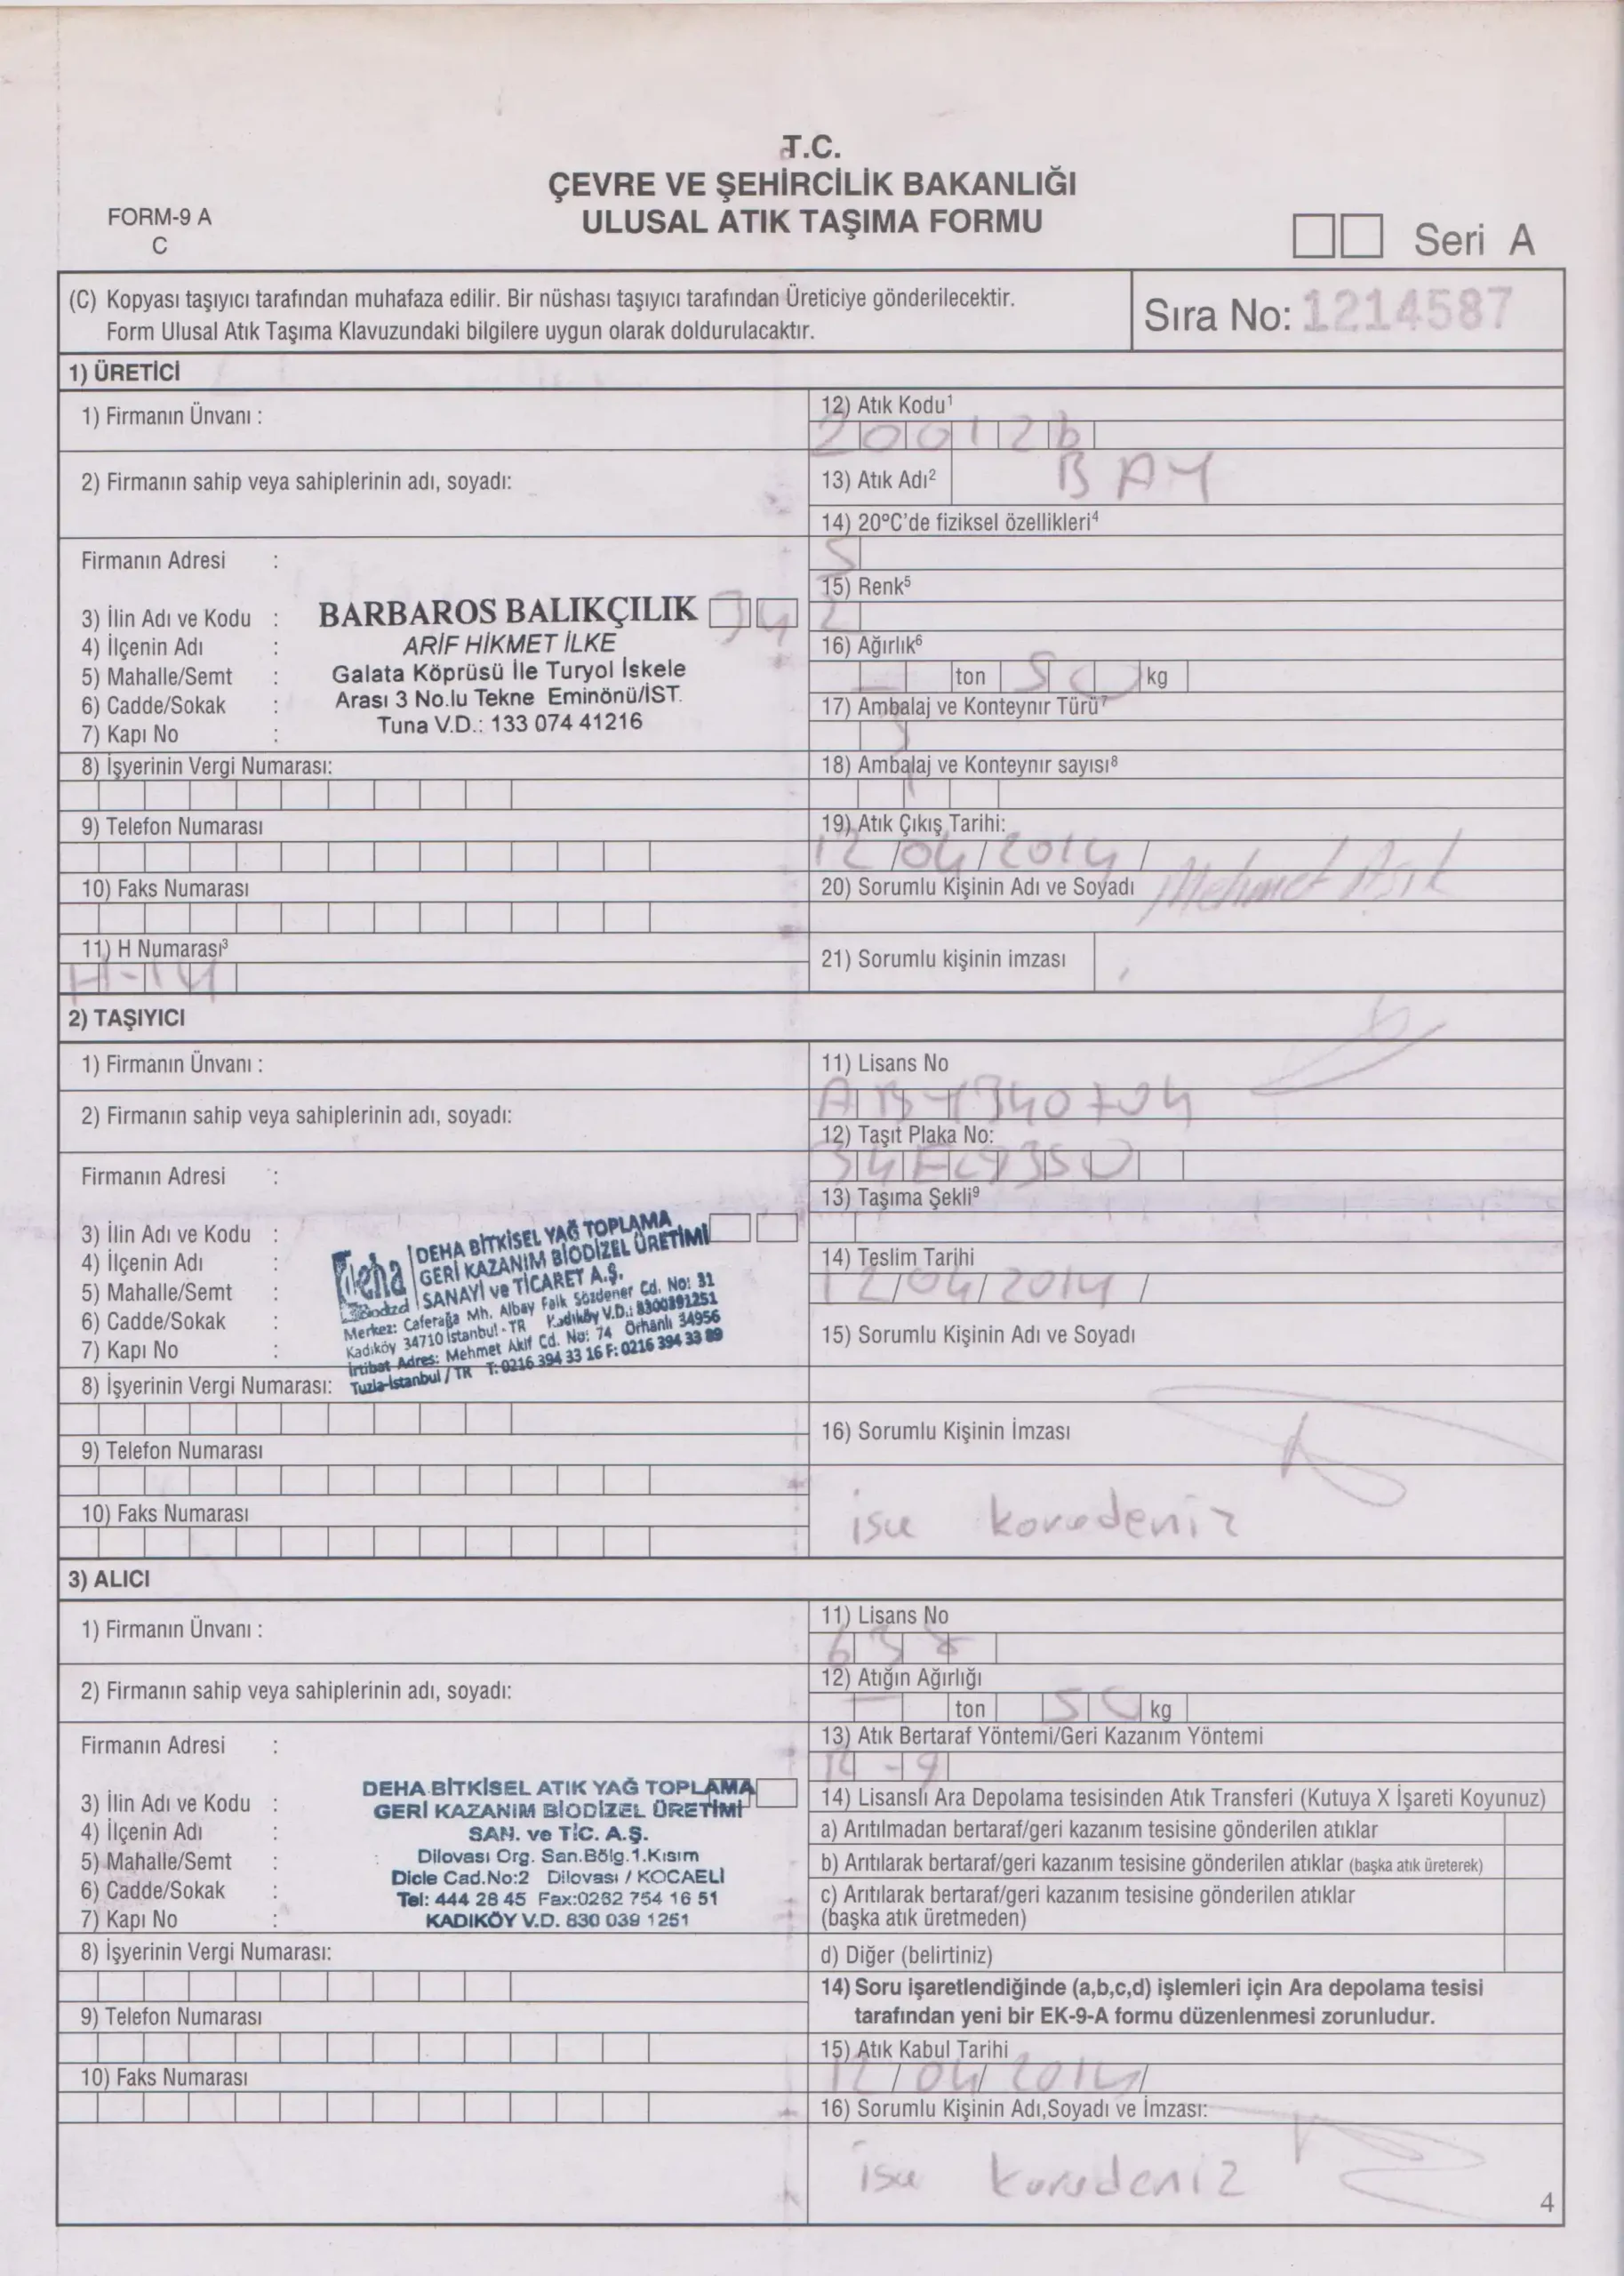 T.C.
ÇEVRE VE ŞEHİRCİLİK BAKANLIĞI
ULUSAL ATIK TAŞIMA FORMU
FORM-9 A
C
Seri A
(C) Kopyası taşıyıcı tarafından muhafaza edilir. Bir nüshası taşıyıcı tarafından Üreticiye gönderilecektir.
Form Ulusal Atık Taşıma Klavuzundaki bilgilere uygun olarak doldurulacaktır.
Sıra No: 1214587
1) ÜRETİCİ
1) Firmanın Ünvanı :
2) Firmanın sahip veya sahiplerinin adı, soyadı:
Firmanın Adresi :
3) İlin Adı ve Kodu :
4) İlçenin Adı :
5) Mahalle/Semt :
6) Cadde/Sokak :
7) Kapı No :
BARBAROS BALIKÇILIK 34
ARİF HİKMET İLKE
Galata Köprüsü İle Turyol İskele
Arası 3 No.lu Tekne Eminönü/İST.
Tuna V.D.: 133 074 41216
8) İşyerinin Vergi Numarası:
9) Telefon Numarası
10) Faks Numarası
11) H Numarası³
H-14
12) Atık Kodu¹
200126
13) Atık Adı² BAY
14) 20°C'de fiziksel özellikleri⁴
5
15) Renk⁵
2
16) Ağırlık⁶
- ton 50 kg
17) Ambalaj ve Konteynır Türü⁷
18) Ambalaj ve Konteynır sayısı⁸
19) Atık Çıkış Tarihi:
12/04/2014/
20) Sorumlu Kişinin Adı ve Soyadı Mehmet Aşık
21) Sorumlu kişinin imzası
2) TAŞIYICI
1) Firmanın Ünvanı :
2) Firmanın sahip veya sahiplerinin adı, soyadı:
Firmanın Adresi :
3) İlin Adı ve Kodu :
4) İlçenin Adı :
5) Mahalle/Semt :
6) Cadde/Sokak :
7) Kapı No :
Deha Biodizel
DEHA BİTKİSEL YAĞ TOPLAMA
GERİ KAZANIM BİODİZEL ÜRETİMİ
SANAYİ ve TİCARET A.Ş.
Merkez: Caferağa Mh. Albay Faik Sözdener Cd. No: 31
Kadıköy 34710 İstanbul - TR Kadıköy V.D.: 8300391251
İrtibat Adres: Mehmet Akif Cd. No: 74 Orhanlı 34956
Tuzla-İstanbul / TR T: 0216 394 33 16 F: 0216 394 33 89
8) İşyerinin Vergi Numarası:
9) Telefon Numarası
10) Faks Numarası
11) Lisans No
12) Taşıt Plaka No:
13) Taşıma Şekli⁹
14) Teslim Tarihi
12/04/2014 /
15) Sorumlu Kişinin Adı ve Soyadı
16) Sorumlu Kişinin İmzası
isa karadeniz
3) ALICI
1) Firmanın Ünvanı :
2) Firmanın sahip veya sahiplerinin adı, soyadı:
Firmanın Adresi :
3) İlin Adı ve Kodu :
4) İlçenin Adı :
5) Mahalle/Semt :
6) Cadde/Sokak :
7) Kapı No :
DEHA BİTKİSEL ATIK YAĞ TOPLAMA
GERİ KAZANIM BİODİZEL ÜRETİMİ
SAN. ve TİC. A.Ş.
Dilovası Org. San.Bölg.1.Kısım
Dicle Cad.No:2 Dilovası / KOCAELİ
Tel: 444 28 45 Fax:0262 754 16 51
KADIKÖY V.D. 830 039 1251
8) İşyerinin Vergi Numarası:
9) Telefon Numarası
10) Faks Numarası
11) Lisans No
638
12) Atığın Ağırlığı
- ton 50 kg
13) Atık Bertaraf Yöntemi/Geri Kazanım Yöntemi
R-9
14) Lisanslı Ara Depolama tesisinden Atık Transferi (Kutuya X İşareti Koyunuz)
a) Arıtılmadan bertaraf/geri kazanım tesisine gönderilen atıklar
b) Arıtılarak bertaraf/geri kazanım tesisine gönderilen atıklar (başka atık üreterek)
c) Arıtılarak bertaraf/geri kazanım tesisine gönderilen atıklar
(başka atık üretmeden)
d) Diğer (belirtiniz)
14) Soru işaretlendiğinde (a,b,c,d) işlemleri için Ara depolama tesisi
tarafından yeni bir EK-9-A formu düzenlenmesi zorunludur.
15) Atık Kabul Tarihi
12/04/2014/
16) Sorumlu Kişinin Adı,Soyadı ve İmzası:
isa karadeniz
4